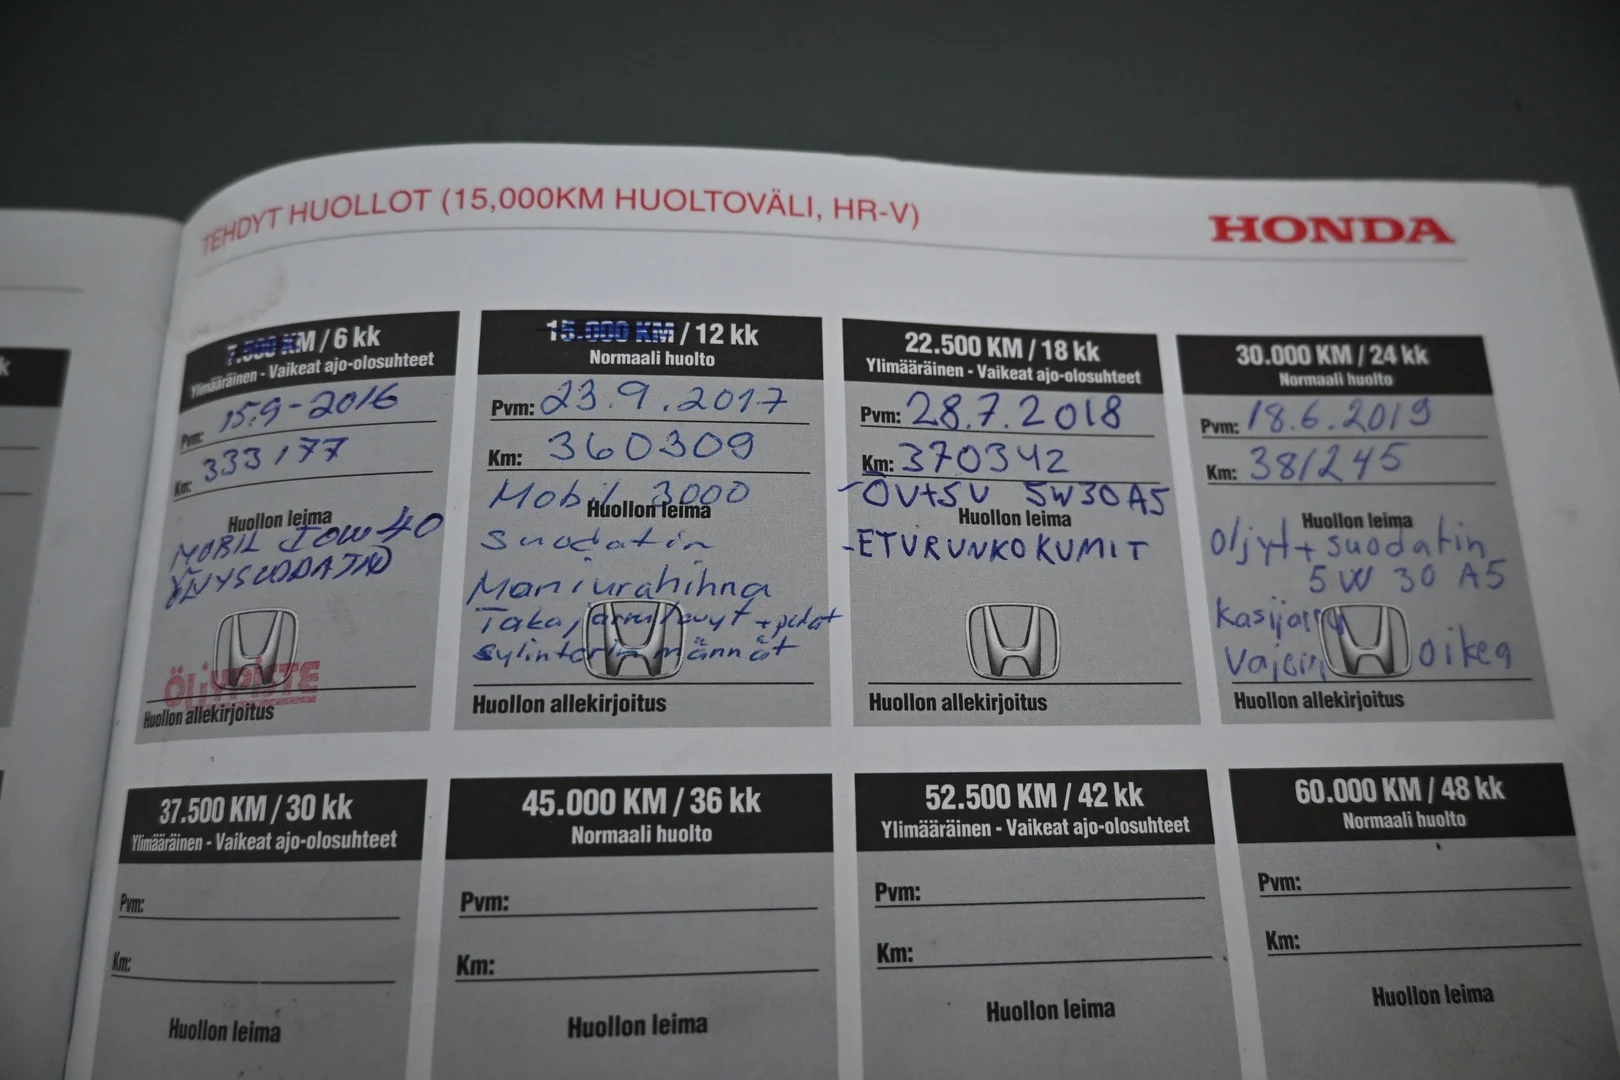 TEHDYT HUOLLOT (15,000KM HUOLTOVÄLI, HR-V)
HONDA
7.500 KM / 6 kk
Ylimääräinen - Vaikeat ajo-olosuhteet
Pvm: 15.9-2016
Km: 333177
Huollon leima
MOBIL 10W40
ÖLJYSUODATIN
ÖLJYPISTE
Huollon allekirjoitus
15.000 KM / 12 kk
Normaali huolto
Pvm: 23.9.2017
Km: 360309
Mobil 3000
Huollon leima
Suodatin
Moniurahihna
Takajarrulevyt + palat
Sylinterin männät
Huollon allekirjoitus
22.500 KM / 18 kk
Ylimääräinen - Vaikeat ajo-olosuhteet
Pvm: 28.7.2018
Km: 370342
-ÖV+SV 5W30 A5
Huollon leima
-ETURUNKOKUMIT
Huollon allekirjoitus
30.000 KM / 24 kk
Normaali huolto
Pvm: 18.6.2019
Km: 381245
Huollon leima
Öljyt + suodatin
5W 30 A5
Kasijarru
Vajeri oikea
Huollon allekirjoitus
37.500 KM / 30 kk
Ylimääräinen - Vaikeat ajo-olosuhteet
Pvm:
Km:
Huollon leima
45.000 KM / 36 kk
Normaali huolto
Pvm:
Km:
Huollon leima
52.500 KM / 42 kk
Ylimääräinen - Vaikeat ajo-olosuhteet
Pvm:
Km:
Huollon leima
60.000 KM / 48 kk
Normaali huolto
Pvm:
Km:
Huollon leima
k